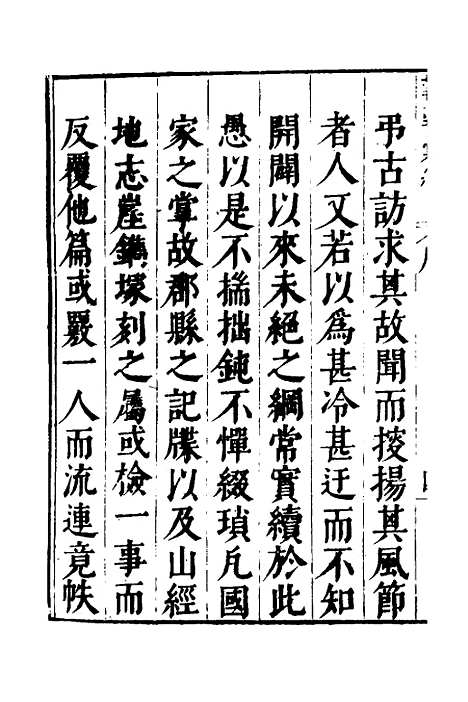 弔古訪求其故聞而揆揚其風節
者人又若以爲甚冷甚迂而不知
開闢以來未絕之綱常實續於此
愚以是不揣拙鈍不憚綴瑣凡國
家之掌故郡縣之記牒以及山經
地志崖鐫塚刻之屬或檢一事而
反覆他篇或覈一人而流連竟帙